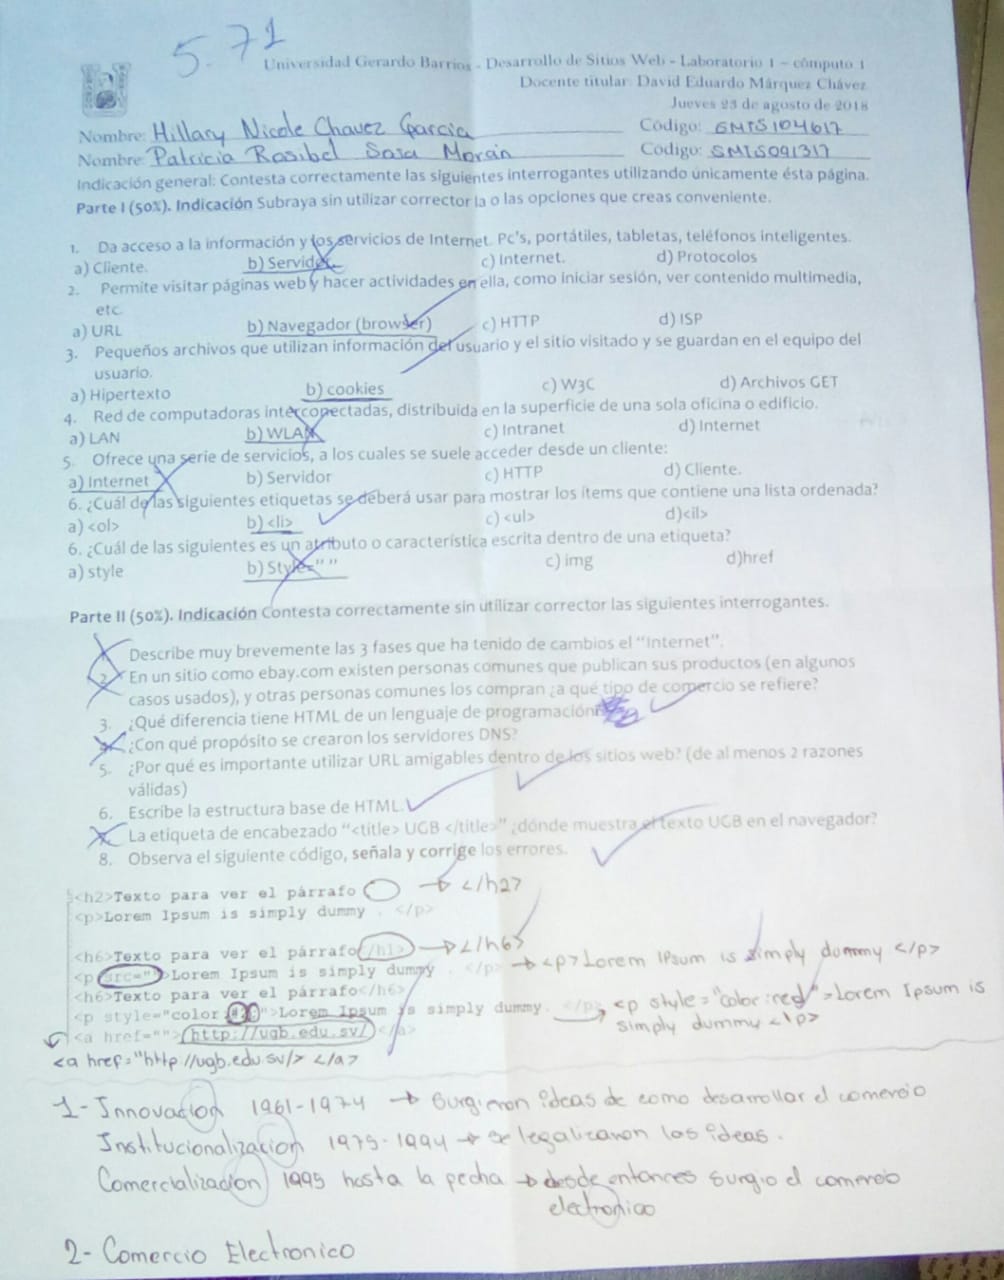 5.71
Universidad Gerardo Barrios - Desarrollo de Sitios Web - Laboratorio 1 - cómputo 1
Docente titular: David Eduardo Márquez Chávez
Jueves 23 de agosto de 2018
Nombre: Hillary Nicole Chavez Garcia Código: SMIS104617
Nombre: Patricia Rosibel Sosa Morán Código: SMIS091317
Indicación general: Contesta correctamente las siguientes interrogantes utilizando únicamente ésta página.
Parte I (50%). Indicación Subraya sin utilizar corrector la o las opciones que creas conveniente.
1. Da acceso a la información y los servicios de Internet. Pc's, portátiles, tabletas, teléfonos inteligentes.
a) Cliente. b) Servidor c) Internet. d) Protocolos
2. Permite visitar páginas web y hacer actividades en ella, como iniciar sesión, ver contenido multimedia,
etc.
a) URL b) Navegador (browser) c) HTTP d) ISP
3. Pequeños archivos que utilizan información del usuario y el sitio visitado y se guardan en el equipo del
usuario.
a) Hipertexto b) cookies c) W3C d) Archivos GET
4. Red de computadoras interconectadas, distribuida en la superficie de una sola oficina o edificio.
a) LAN b) WLAN c) Intranet d) Internet
5. Ofrece una serie de servicios, a los cuales se suele acceder desde un cliente:
a) Internet b) Servidor c) HTTP d) Cliente.
6. ¿Cuál de las siguientes etiquetas se deberá usar para mostrar los ítems que contiene una lista ordenada?
a) <ol> b) <li> c) <ul> d)<il>
6. ¿Cuál de las siguientes es un atributo o característica escrita dentro de una etiqueta?
a) style b) Style=" " c) img d)href
Parte II (50%). Indicación Contesta correctamente sin utilizar corrector las siguientes interrogantes.
Describe muy brevemente las 3 fases que ha tenido de cambios el "Internet".
2. En un sitio como ebay.com existen personas comunes que publican sus productos (en algunos
casos usados), y otras personas comunes los compran ¿a qué tipo de comercio se refiere?
3. ¿Qué diferencia tiene HTML de un lenguaje de programación
¿Con qué propósito se crearon los servidores DNS?
5. ¿Por qué es importante utilizar URL amigables dentro de los sitios web? (de al menos 2 razones
válidas)
6. Escribe la estructura base de HTML.
La etiqueta de encabezado "<title> UGB </title>" ¿dónde muestra el texto UGB en el navegador?
8. Observa el siguiente código, señala y corrige los errores.
<h2>Texto para ver el párrafo → </h2>
<p>Lorem Ipsum is simply dummy . </p>
<h6>Texto para ver el párrafo</h1> → </h6>
<p src="">Lorem Ipsum is simply dummy . </p> → <p>Lorem Ipsum is simply dummy </p>
<h6>Texto para ver el párrafo</h6>
<p style="color: ">Lorem Ipsum is simply dummy. </p> → <p style="color:red">Lorem Ipsum is
simply dummy <\p>
<a href="">http://ugb.edu.sv/</a>
<a href="http //ugb.edu.sv/> </a>
1- Innovacion 1961-1974 → Surgieron ideas de como desarrollar el comercio
Institucionalizacion 1975-1994 → se legalizaron las ideas.
Comercializacion 1995 hasta la fecha → desde entonces surgio el comercio
electronico
2- Comercio Electronico